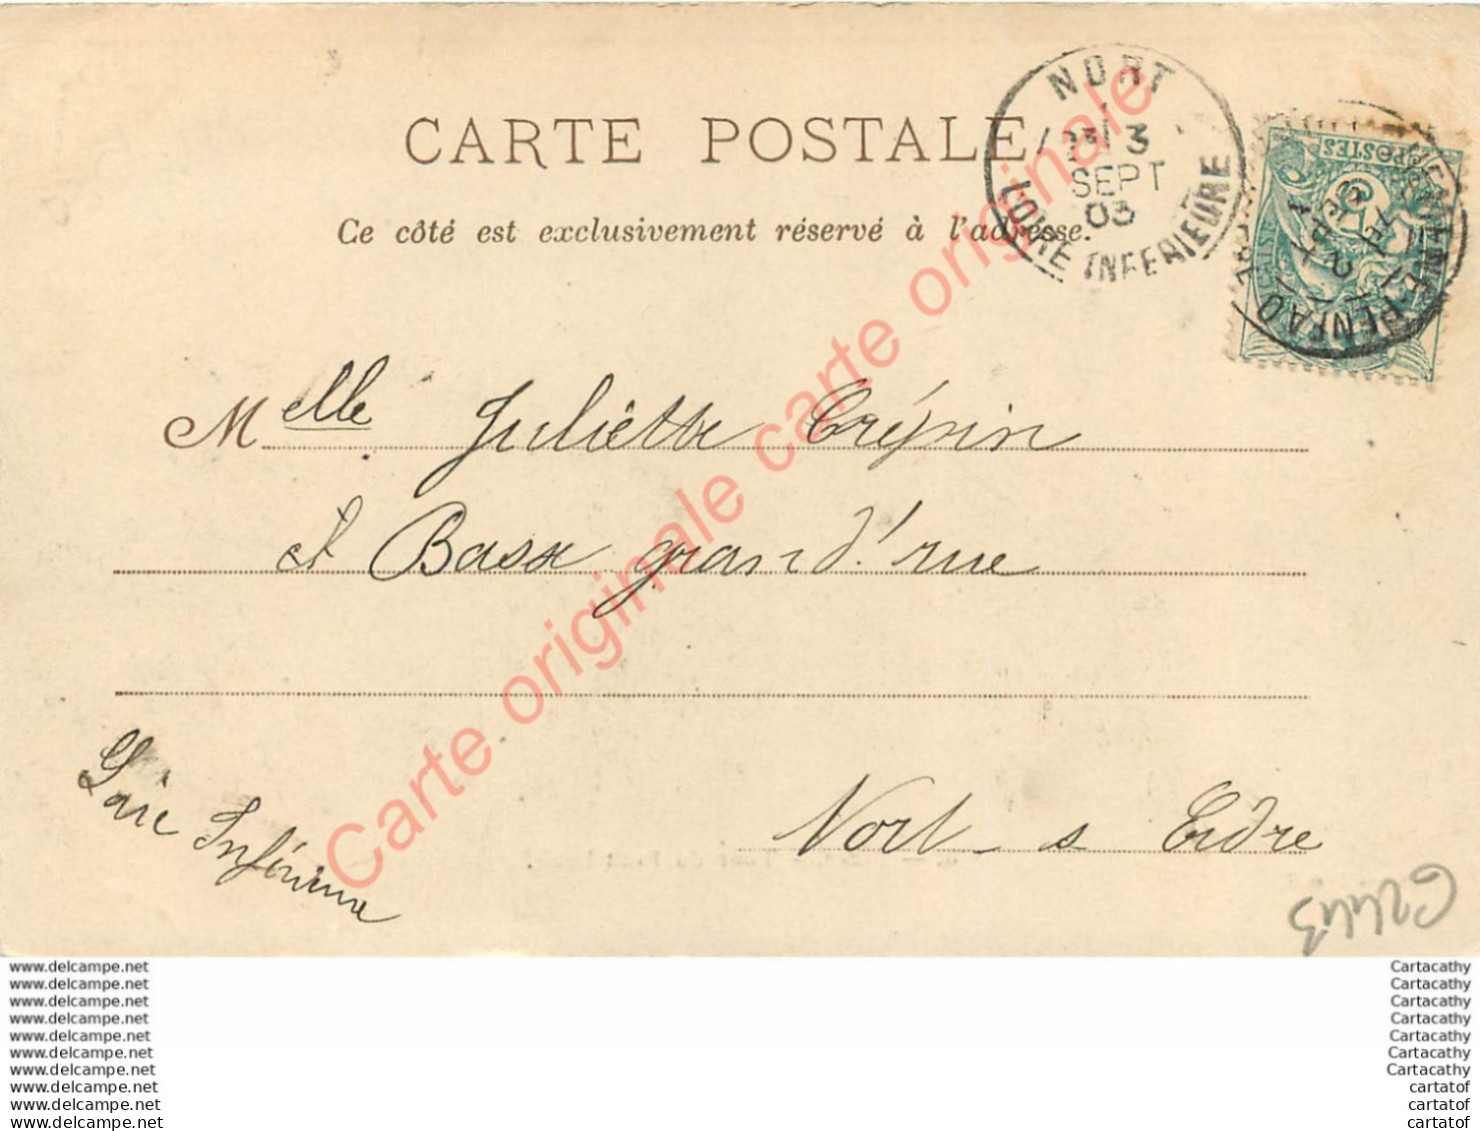 CARTE POSTALE
Ce côté est exclusivement réservé à l'adresse.
NORT
3
SEPT
03
LOIRE INFERIEURE
POSTES
Melle Juliette Crépin
Basse grand'rue
Nort s Erdre
Loire Inférieure
Carte originale carte originale carte originale
www.delcampe.net Cartacathy
www.delcampe.net Cartacathy
www.delcampe.net Cartacathy
www.delcampe.net Cartacathy
www.delcampe.net Cartacathy
www.delcampe.net Cartacathy
www.delcampe.net Cartacathy
www.delcampe.net cartatof
www.delcampe.net cartatof
www.delcampe.net cartatof